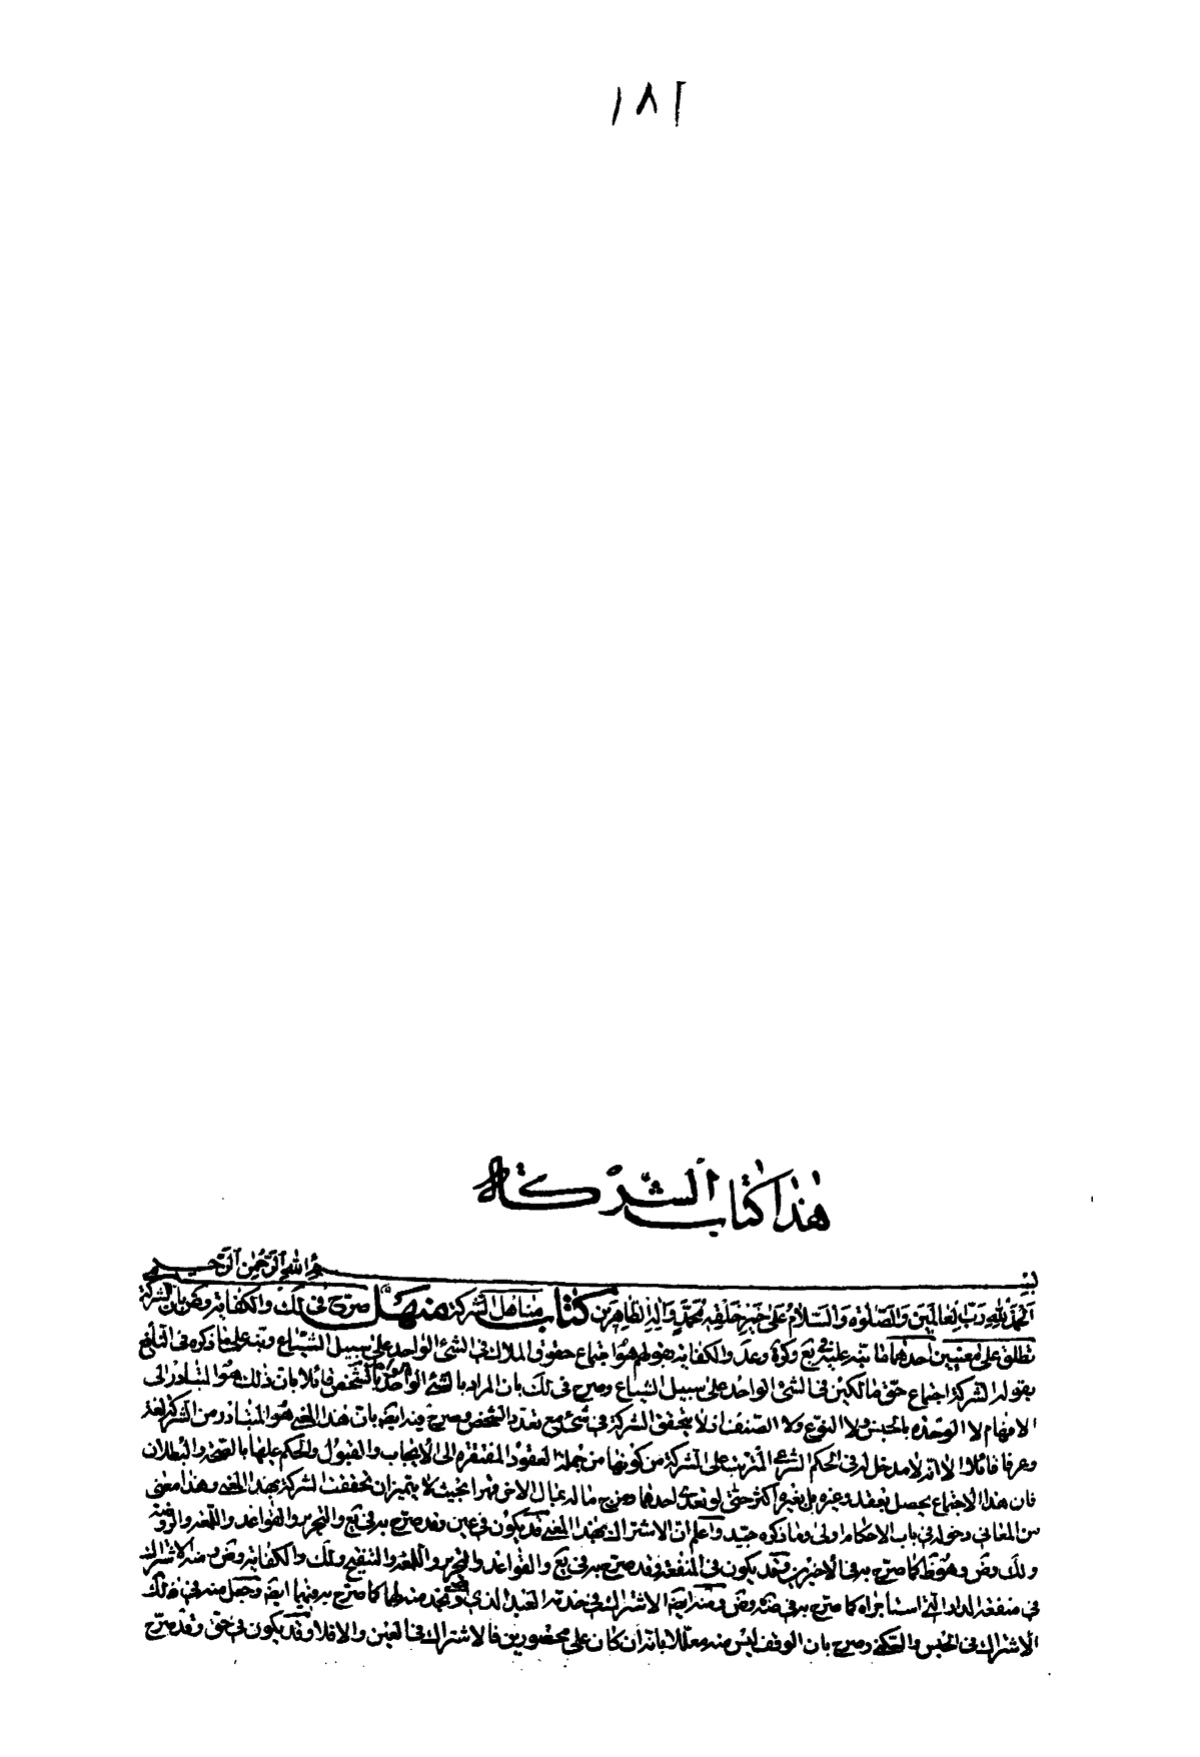 ١٨١
هذا كتاب الشركة
بسم الله الرحمن الرحيم
الحمد لله رب العالمين والصلوة والسلام على خير خلفه محمد واله الطاهرين كتاب مناهل الشركة منهل صرح في لك والكفاية وض بان الشركة
تطلق على معنيين احدهما ما نبه عليه في يع وكرة وعد والكفاية بقولهم هو اجتماع حقوق الملاك في الشئ الواحد على سبيل الشياع ونبه على ما ذكروه في النافع
بقوله الشركة اجتماع حق مالكين في الشئ الواحد على سبيل الشياع وصرح في لك بان المراد بالشئ الواحد بالشخص قائلا بان ذلك هو المتبادر الى
الافهام لا الوحدة بالجنس ولا النوع ولا الصنف اذ لا يتحقق الشركة في شئ مع تعدد الشخص وصرح فيه ايضا بان هذا المعنى هو المتبادر من الشركة لغة
وعرفا قائلا الا انه لا مدخل له في الحكم الشرعي المترتب على الشركة من كونها من جملة العقود المفتقرة الى الايجاب والقبول والحكم عليها بالصحة والبطلان
فان هذا الاجتماع يحصل بعقد وغيره بل بغيره اكثر حتى لو تعدى احدهما ومزج ماله بمال الاخر قهرا بحيث لا يتميزان تحققت الشركة بهذا المعنى وهذا معنى
من المعاني دخوله في باب الاحكام اولى وما ذكره جيد واعلم ان الاشتراك بهذا المعنى قد يكون في عين وقد صرح به في يع والتحرير والقواعد واللمعة والروضة
ولك وض وهو ظ كما صرح به في الاخيرين وقد يكون في المنفعة وقد صرح به في يع والقواعد والتحرير واللمعة والتنقيح ولك والكفاية وض ومنه الاشتراك
في منفعة الدار التي استاجراه كما صرح به في ضه وض ومنه ايضا الاشتراك في خدمة العبد الذي اوصي بخدمته لهما كما صرح به فيهما ايضا وجعل منه في ذلك
الاشتراك في الحبس والسكنى وصرح بان الوقف ليس منه معللا بانه ان كان على محصورين فالاشتراك في العين والا فلا وقد يكون في حق وقد صرح